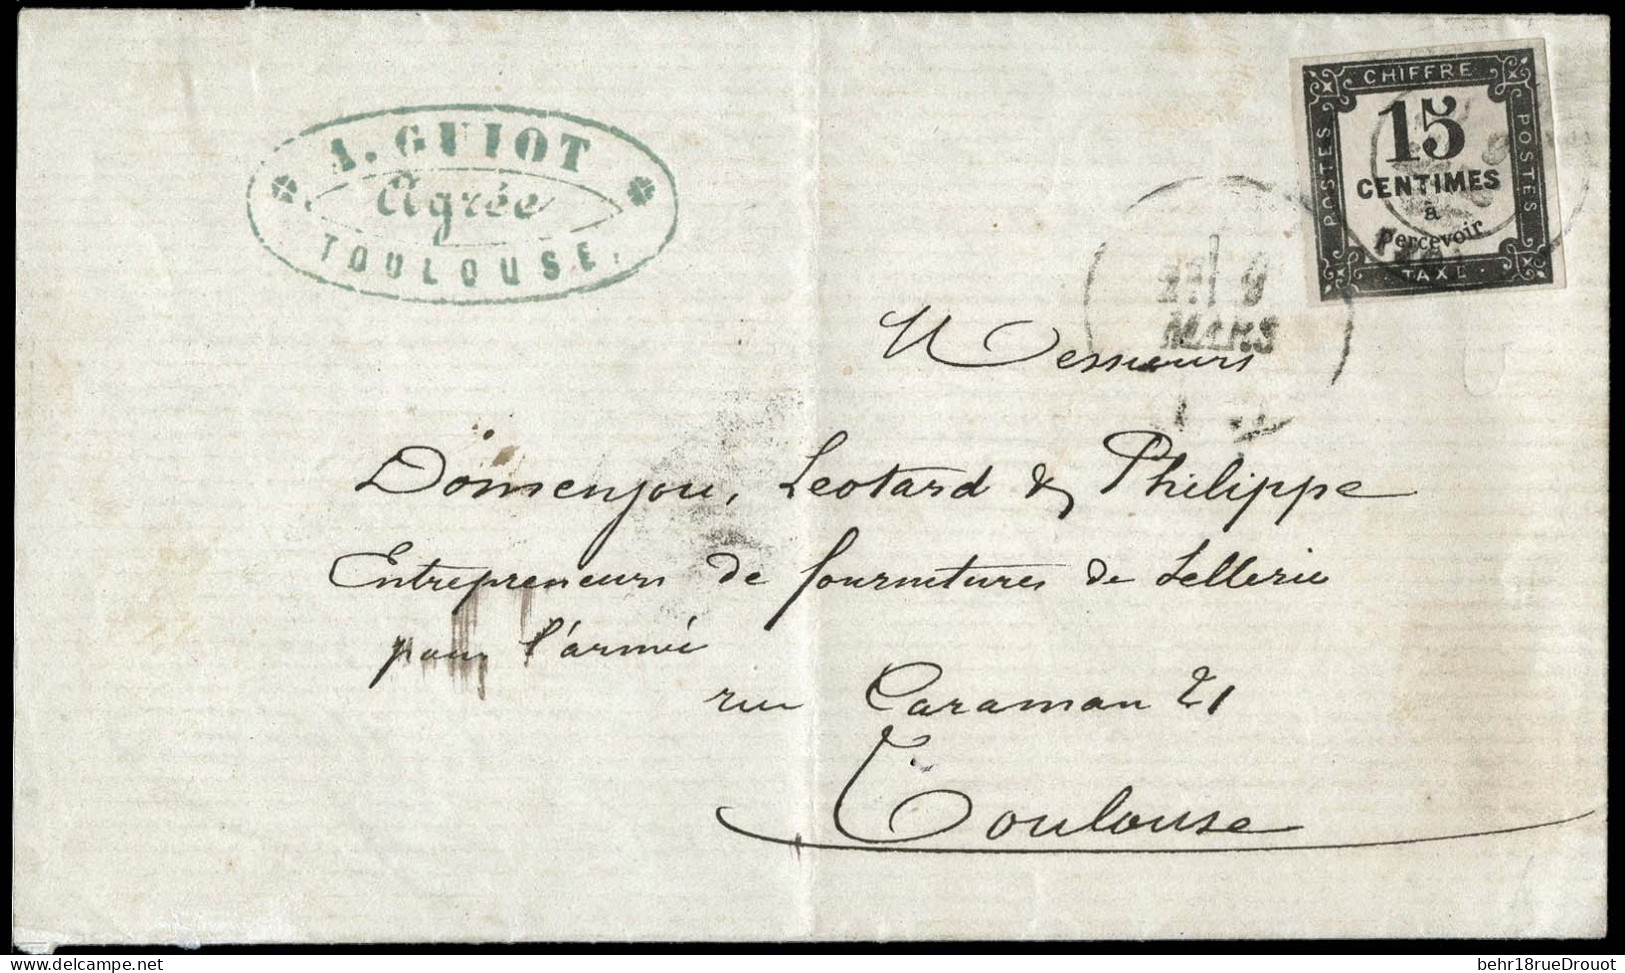 A. GUIOT
Agrée
TOULOUSE.
CHIFFRE
POSTES
15
CENTIMES
à
percevoir
POSTES
TAXE
9
MARS
Messieurs
Domenjou, Leotard & Philippe
Entrepreneurs de fournitures de Sellerie
pour l'armée
rue Caraman 21
Toulouse
behr18rueDrouot